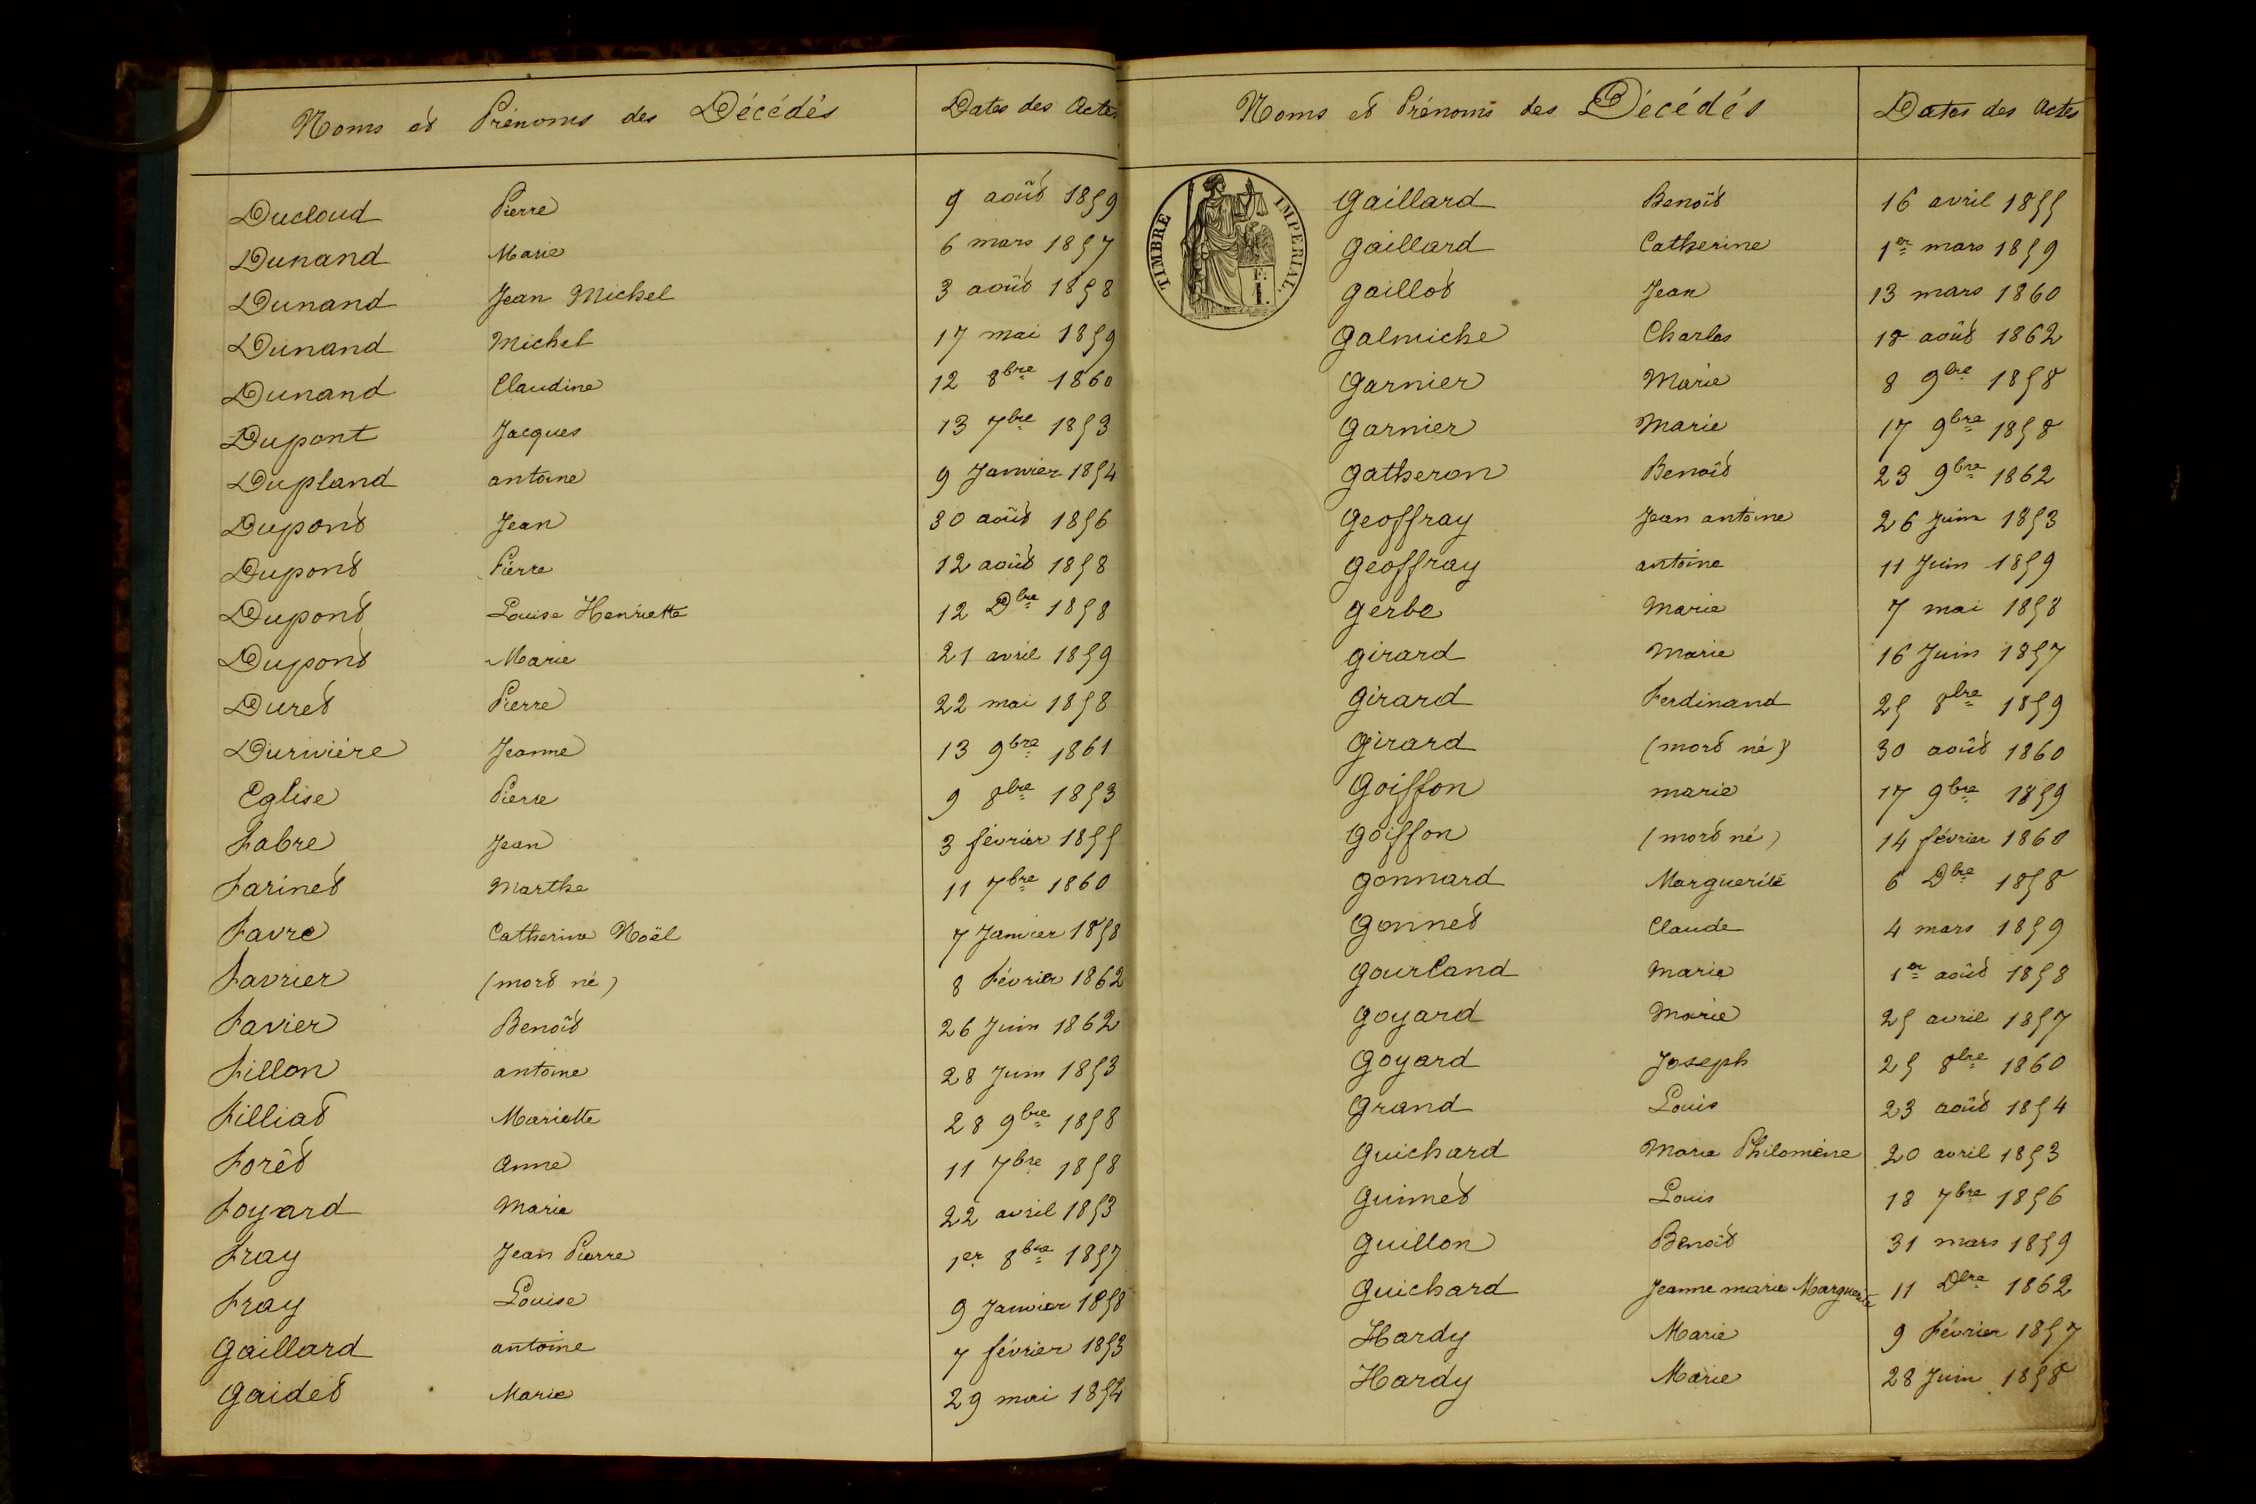 Noms et Prénoms des Décédés Dates des Actes
Ducloud Pierre 9 août 1859
Dunand Marie 6 mars 1857
Dunand Jean Michel 3 août 1858
Dunand Michel 17 mai 1859
Dunand Claudine 12 8bre 1860
Dupont Jacques 13 7bre 1853
Dupland antoine 9 Janvier 1854
Dupont Jean 30 août 1856
Dupont Pierre 12 août 1858
Dupont Louise Henriette 12 Dbre 1858
Dupont Marie 21 avril 1859
Duret Pierre 22 mai 1858
Durivière Jeanne 13 9bre 1861
Eglise Pierre 9 8bre 1853
Fabre Jean 3 février 1855
Farinet Marthe 11 7bre 1860
Favre Catherine Noël 7 Janvier 1858
Favrier (mort né) 8 Février 1862
Favier Benoît 26 Juin 1862
Fillon antoine 28 Juin 1853
Filliat Mariette 28 9bre 1858
Forêt Anne 11 7bre 1858
Foyard Marie 22 avril 1853
Fray Jean Pierre 1er 8bre 1857
Fray Louise 9 Janvier 1858
Gaillard antoine 7 février 1853
Gaidet Marie 29 mai 1854
Noms et Prénoms des Décédés Dates des Actes
TIMBRE IMPERIAL.
Gaillard Benoît 16 avril 1855
Gaillard Catherine 1er mars 1859
Gaillot Jean 13 mars 1860
Galmiche Charles 18 août 1862
Garnier Marie 8 9bre 1858
Garnier Marie 17 9bre 1858
Gatheron Benoît 23 9bre 1862
Geoffray Jean antoine 26 Juin 1853
Geoffray antoine 11 Juin 1859
Gerbe Marie 7 mai 1858
Girard Marie 16 Juin 1857
Girard Ferdinand 25 8bre 1859
Girard (mort né) 30 août 1860
Goiffon marie 17 9bre 1859
Goiffon (mort né) 14 février 1860
Gonnard Marguerite 6 Dbre 1858
Gonnet Claude 4 mars 1859
Gourland Marie 1er août 1858
Goyard Marie 25 avril 1857
Goyard Joseph 25 8bre 1860
Grand Louis 23 août 1854
Guichard Marie Philomène 20 avril 1853
Guimet Louis 18 7bre 1856
Guillon Benoît 31 mars 1859
Guichard Jeanne marie Marguerite 11 Dbre 1862
Hardy Marie 9 Février 1857
Hardy Marie 28 Juin 1858